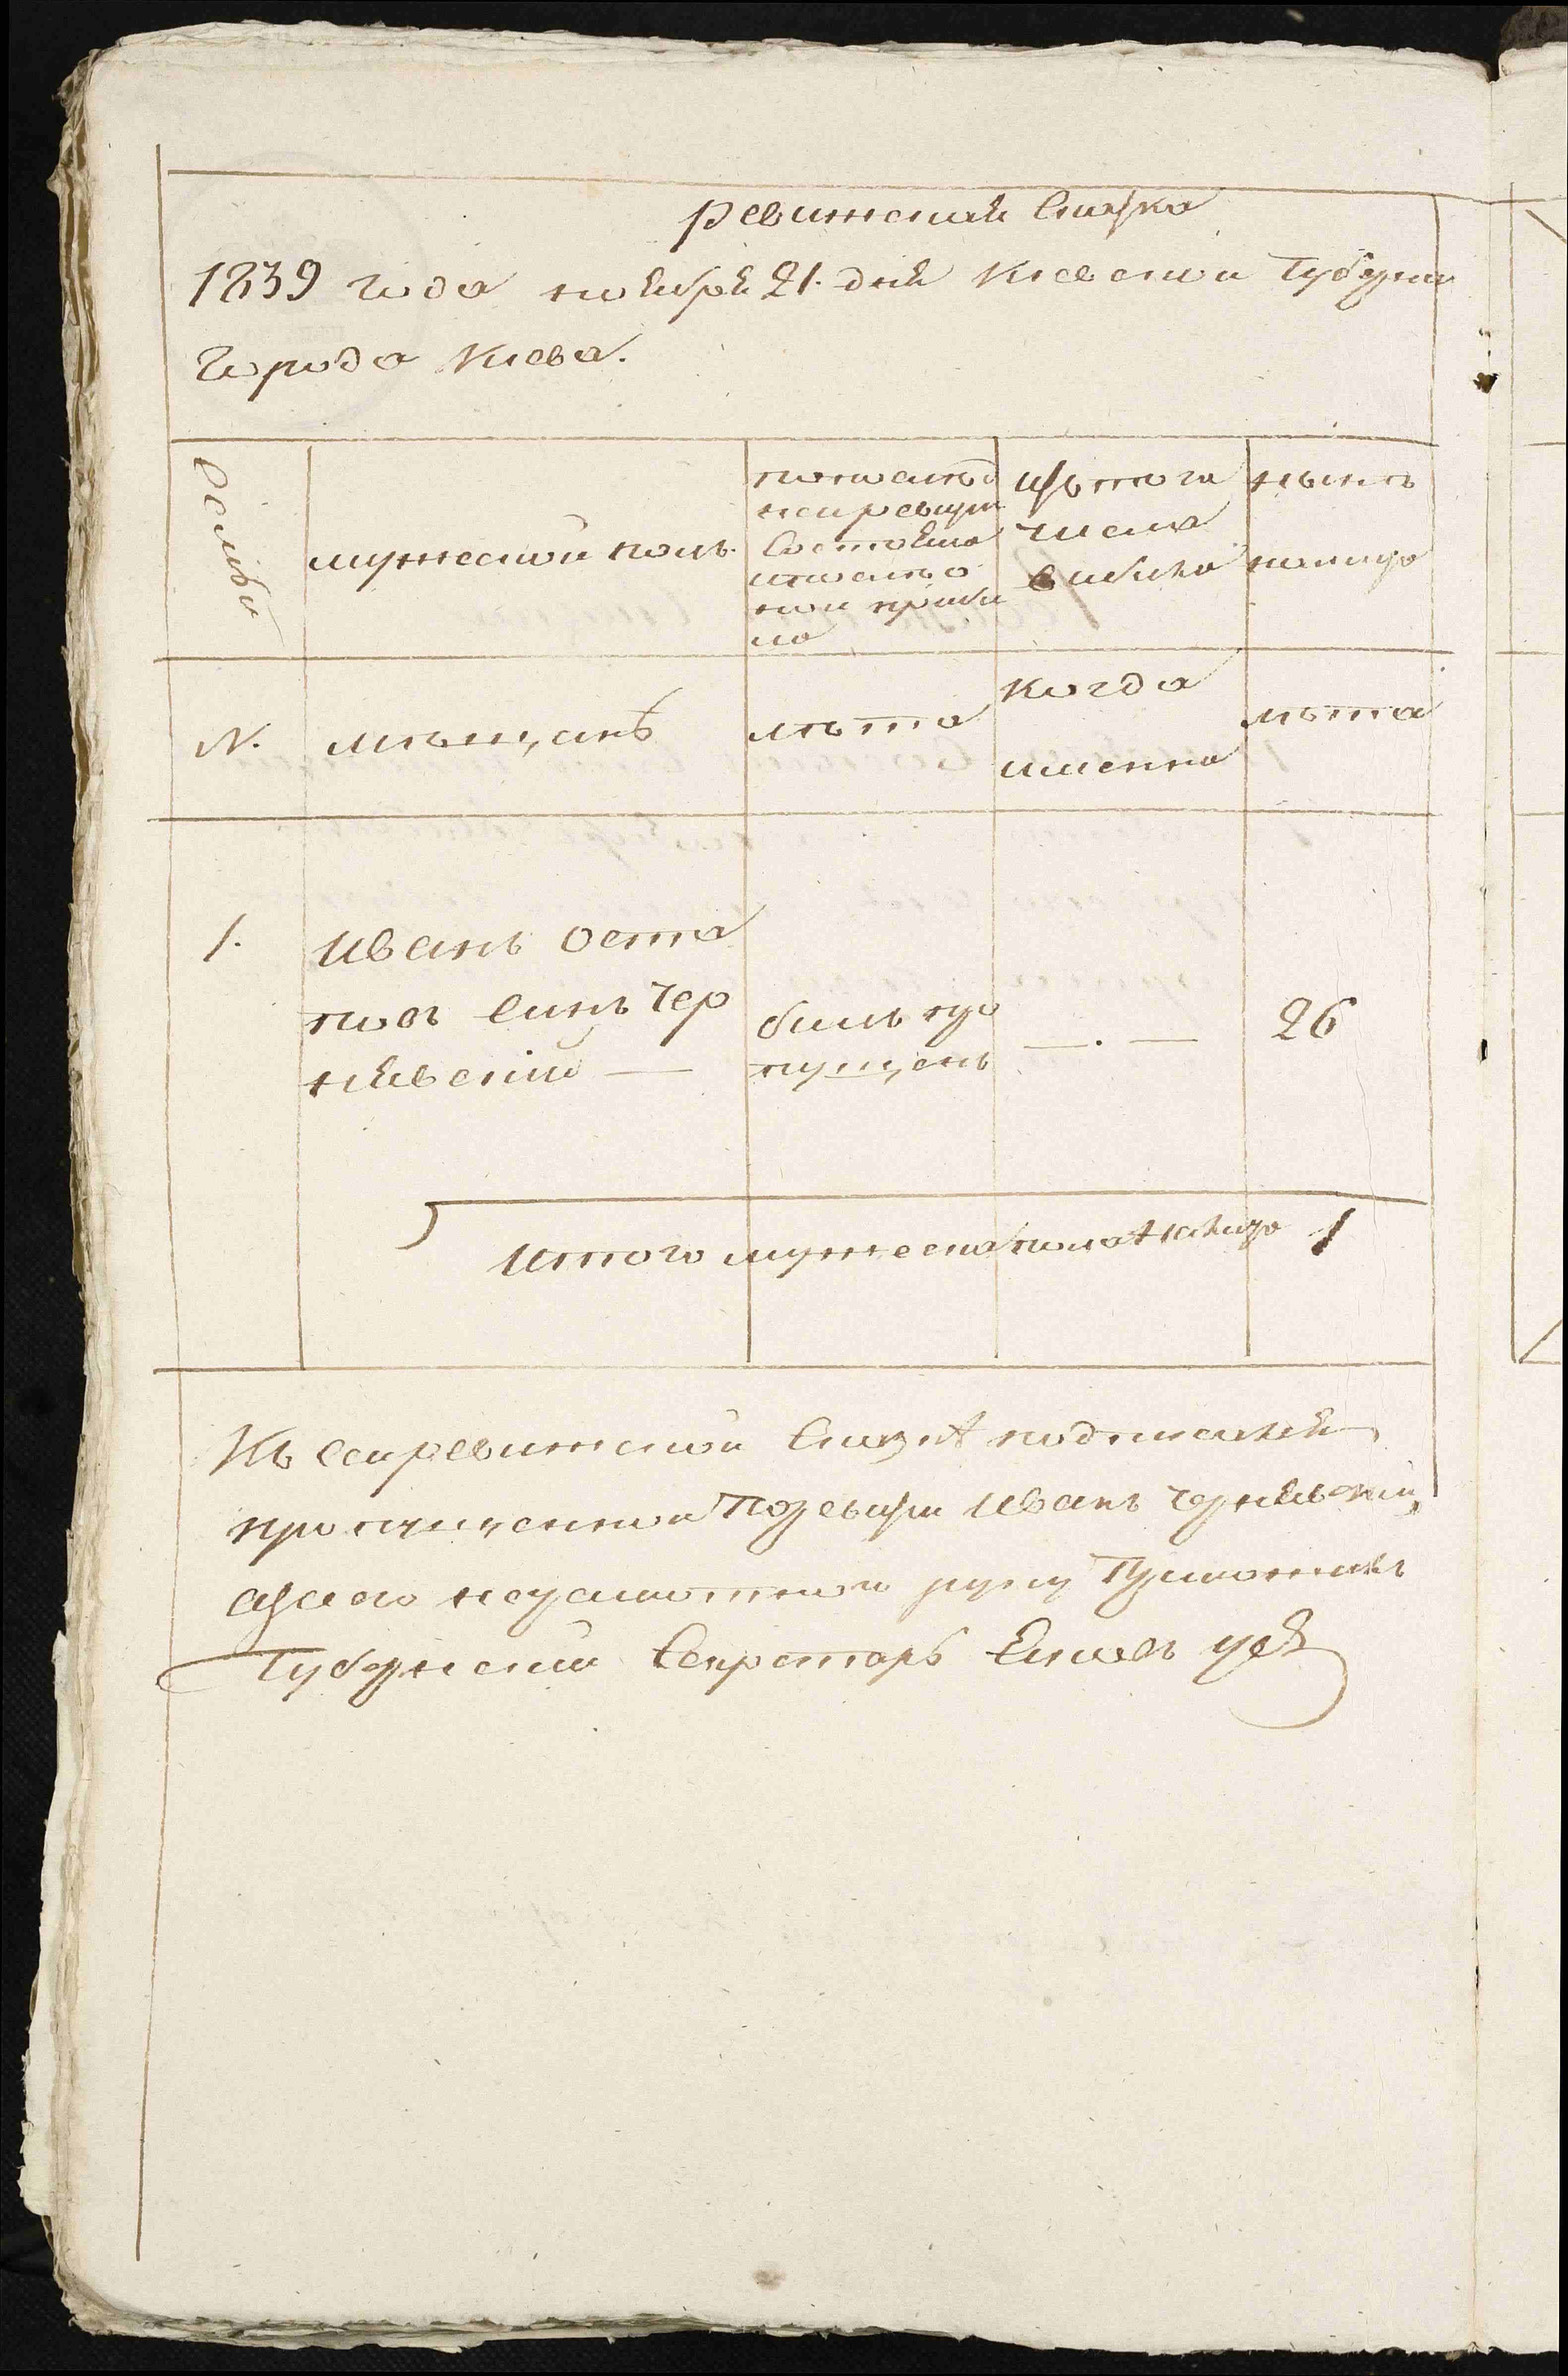 ревижская Сказка
1839 года ноября 21. дня Киевской Губернии
Города Киева.
Семьи
мужеской полъ.
по послед
ней ревизіи
Состояло
и после о
ной прибы
ло
Изъ того
числа
выбило
нынѣ
налицо
N.
мѣщанъ
лѣта
когда
именно
лѣта
1.
Иванъ Оста
повъ Синъ Чер
нявскій —
билъ про
пущенъ
—.—
26
Итого мужеска пола налицо 1
Къ сей ревижской Сказкѣ подписался
пропущенной Поревизіи Иванъ Чернявскій,
азаего неграмотного руку Приложилъ
Губернскій Секретарь